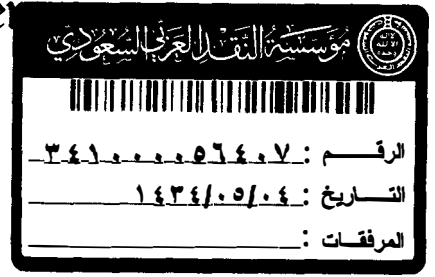 مؤسسة النقد العربي السعودي
الرقم : ٣٤١٠٠٠٠٥٦٤٠٧
التاريخ : ١٤٣٤/٠٥/٠٤
المرفقات :